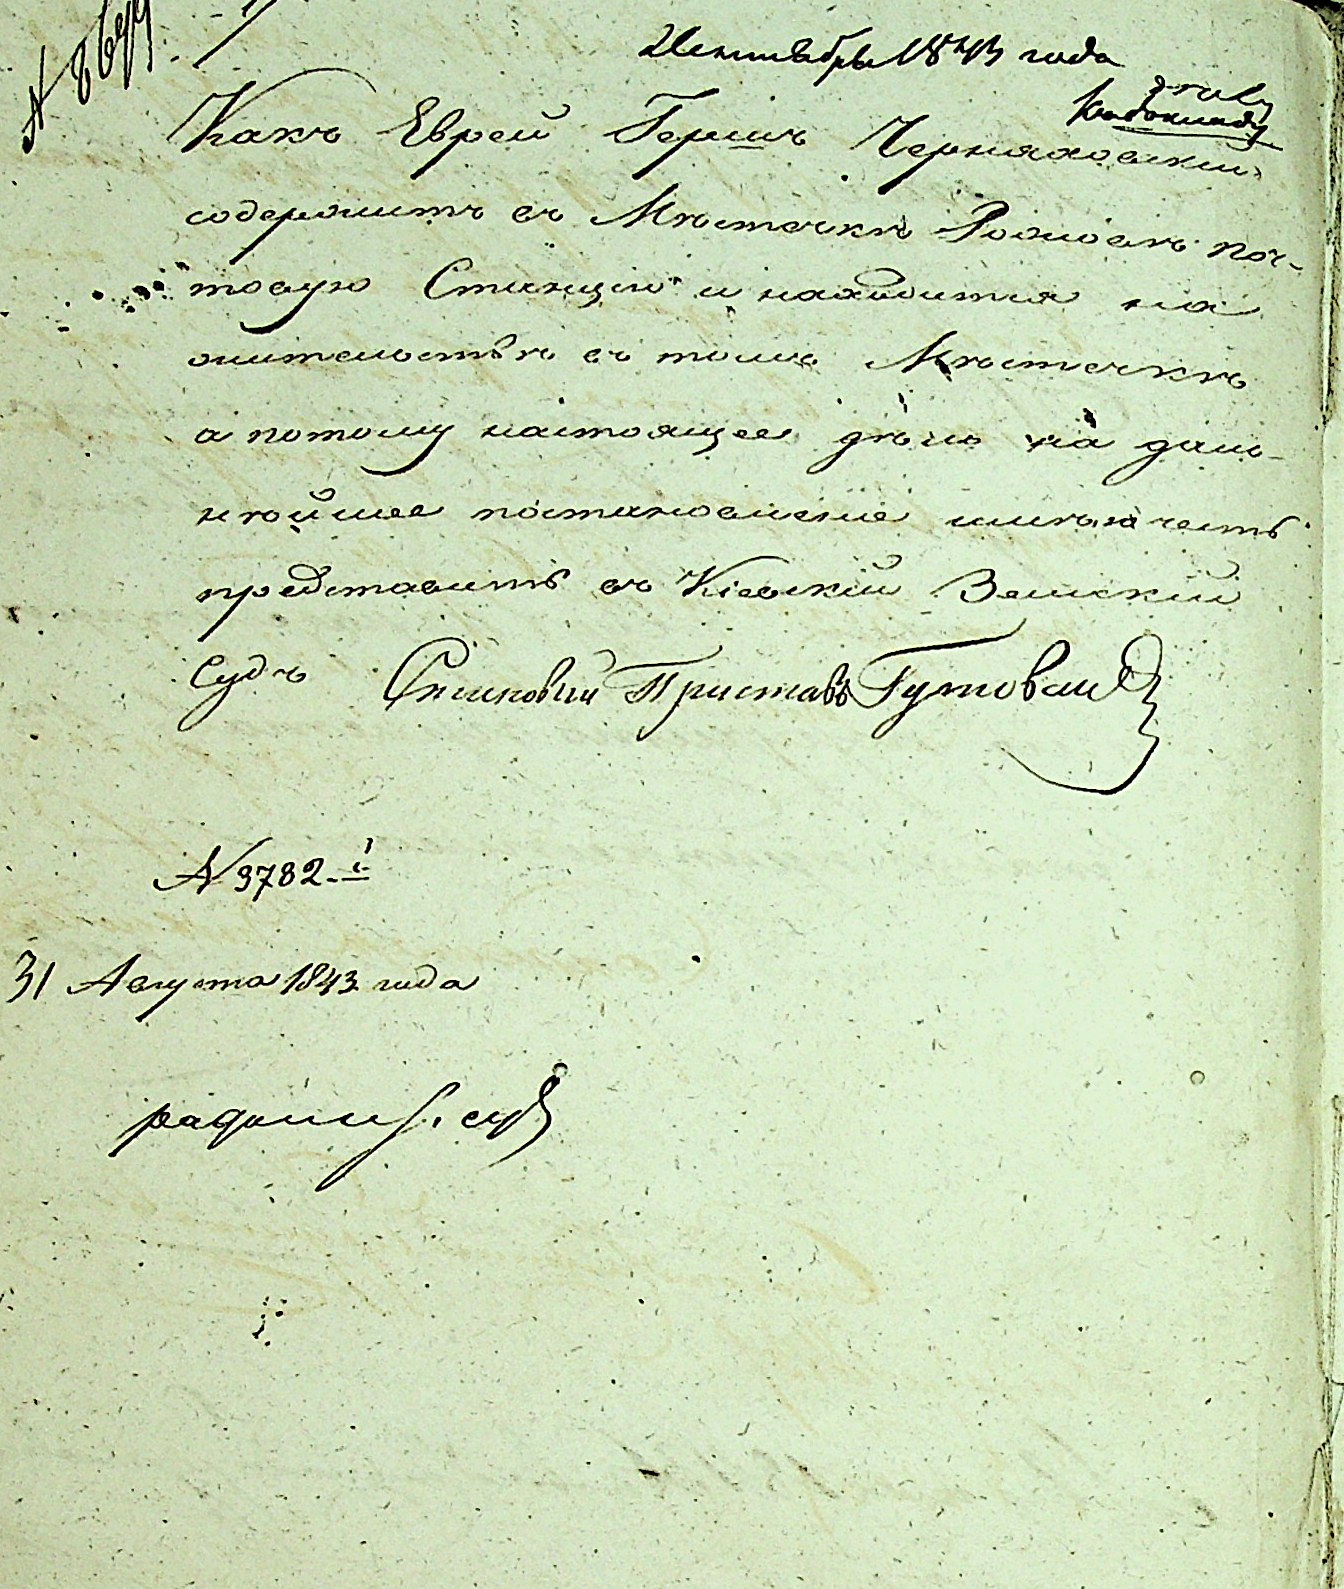 N 8699
2 Сентября 1843 года
къ дѣлу
Какъ Еврей Гершъ Черняховскій
содержитъ въ Мѣстечкѣ Рожовѣ поч-
товую Станцію и находится на
жительствѣ въ томъ Мѣстечкѣ
а потому настоящее дѣло на даль-
нѣйшее постановленіе имѣю честь
представить въ Кіевскій Земскій
Судъ Становый Приставъ Гутовскій
N 3782.
31 Августа 1843 года